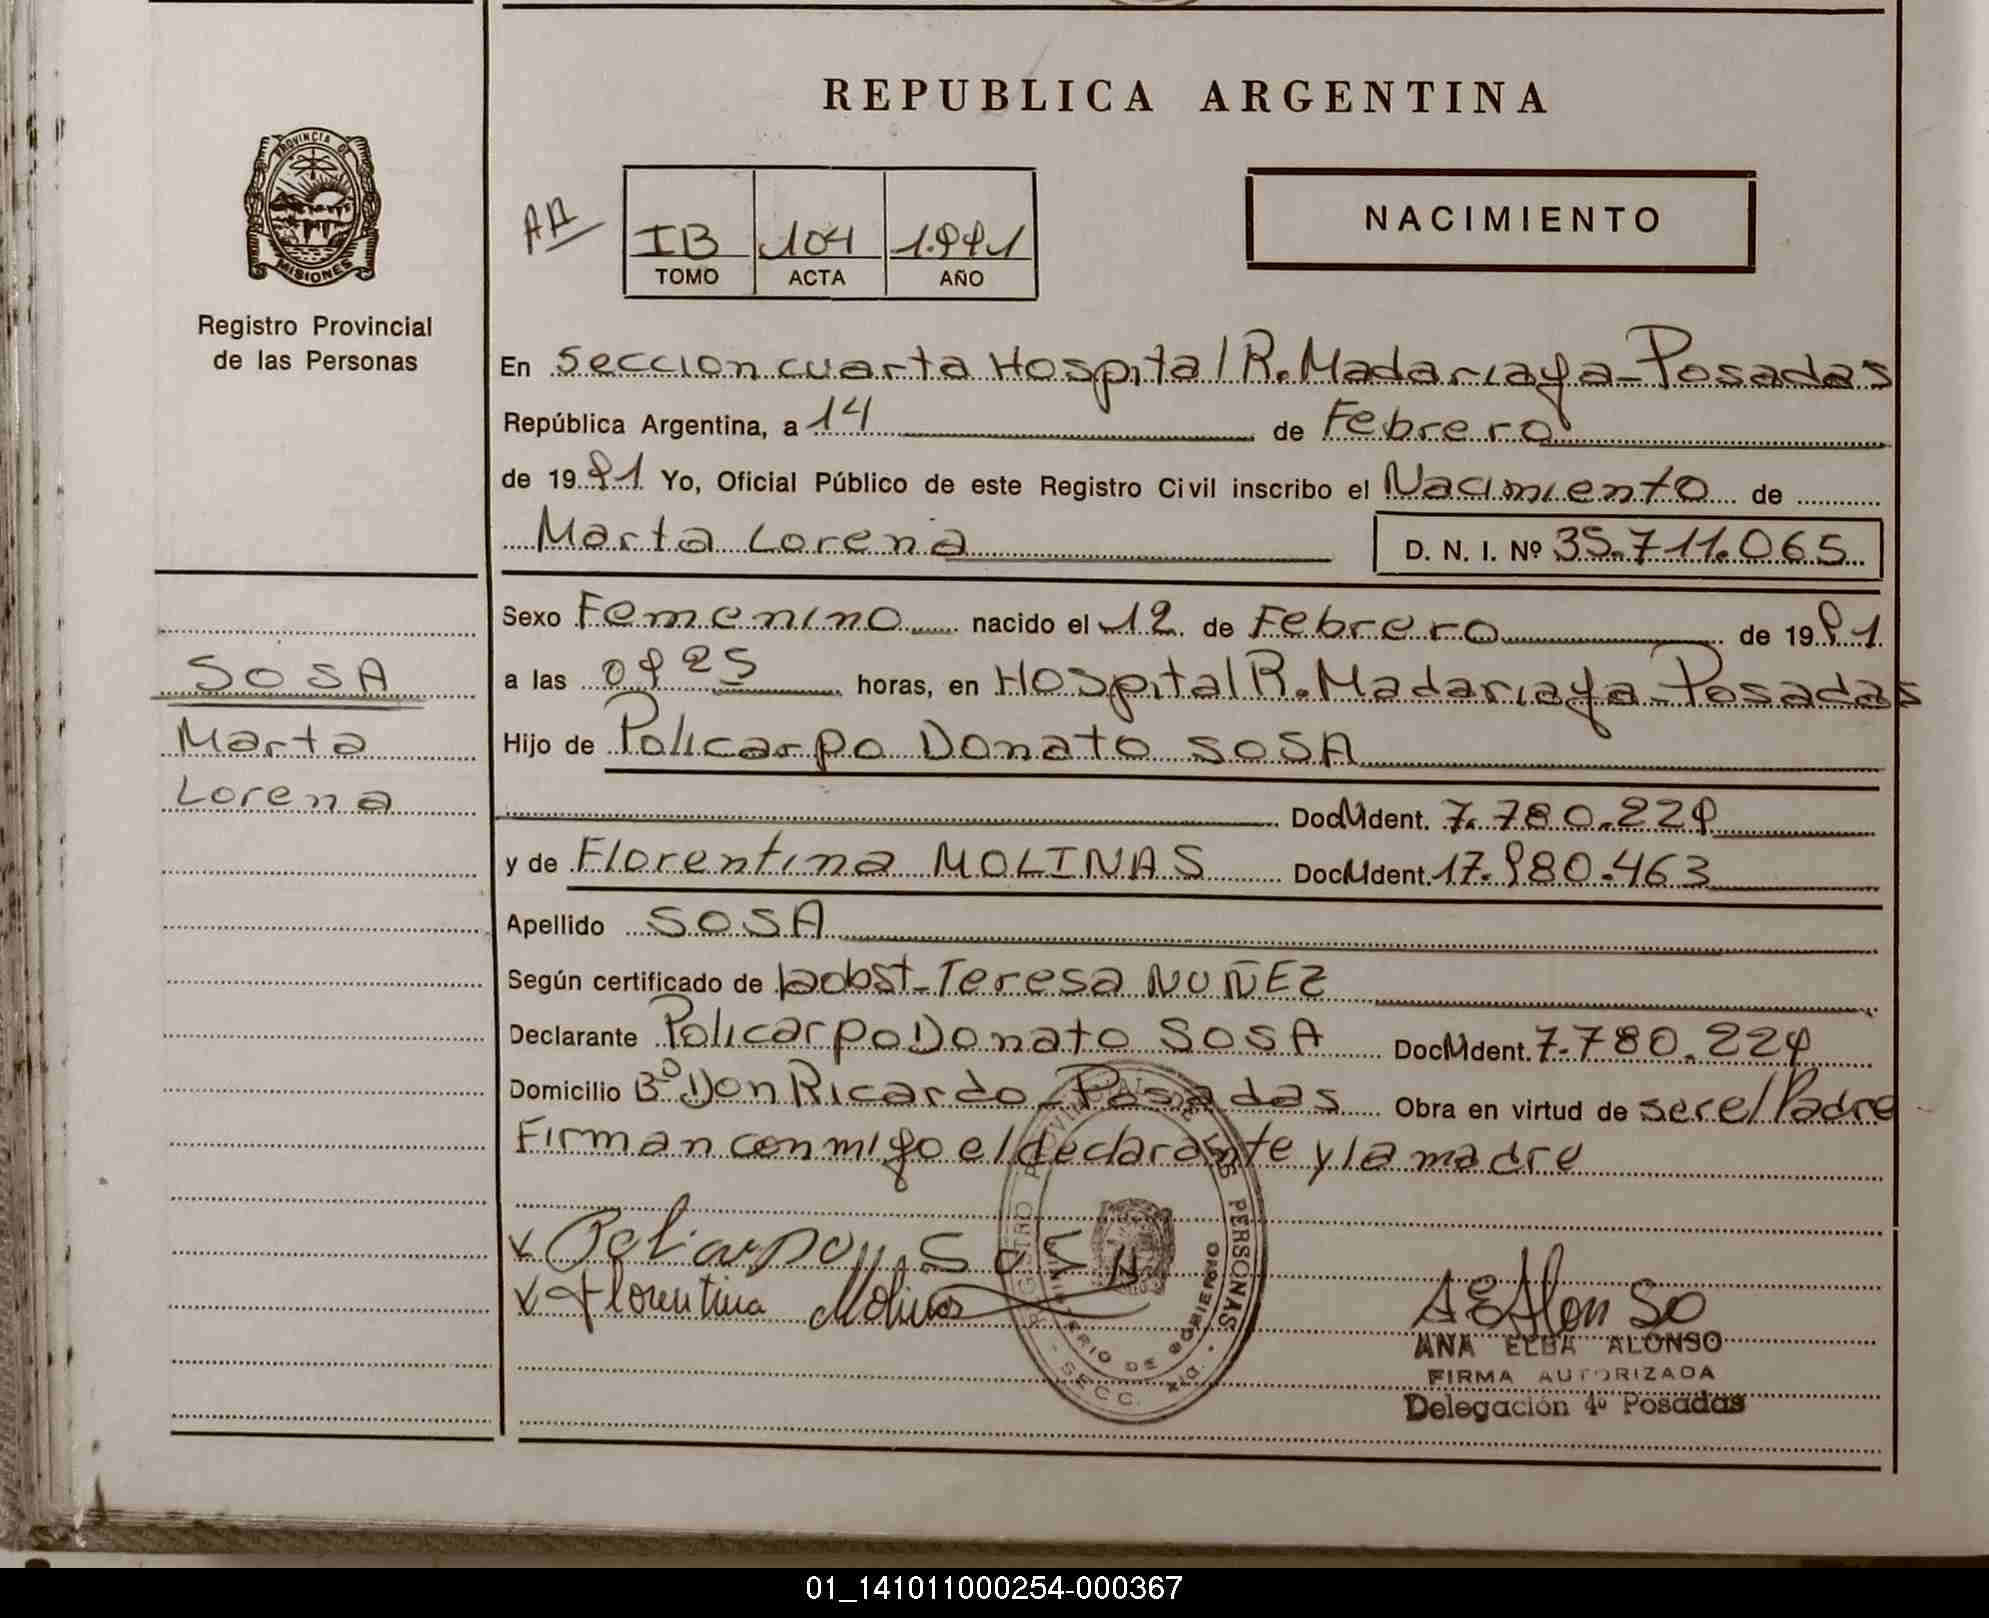 REPUBLICA ARGENTINA
PROVINCIA DE
MISIONES
Registro Provincial
de las Personas
IB 104 1.991
TOMO ACTA AÑO
NACIMIENTO
En Seccion cuarta Hospital R. Madariaga - Posadas
República Argentina, a 14 de Febrero
de 1991 Yo, Oficial Público de este Registro Civil inscribo el Nacimiento de
Marta Lorena D. N. I. Nº 35.711.065
Sexo Femenino nacido el 12 de Febrero de 1991
a las 09 25 horas, en Hospital R. Madariaga - Posadas
Hijo de Policarpo Donato SOSA
Doc M Ident. 7.780.229
y de Florentina MOLINAS Doc M Ident. 17.980.463
Apellido SOSA
Según certificado de Teresa NUÑEZ
Declarante Policarpo Donato SOSA Doc M Ident. 7.780.229
Domicilio Bº Don Ricardo - Posadas Obra en virtud de ser el Padre
Firman conmigo el declarante y la madre
SOSA
Marta
Lorena
Florentina Molinas
AEAlonso
ANA ELBA ALONSO
FIRMA AUTORIZADA
Delegación 4º Posadas
REGISTRO PROVINCIAL DE LAS PERSONAS
MINISTERIO DE GOBIERNO
SECC.
01_141011000254-000367